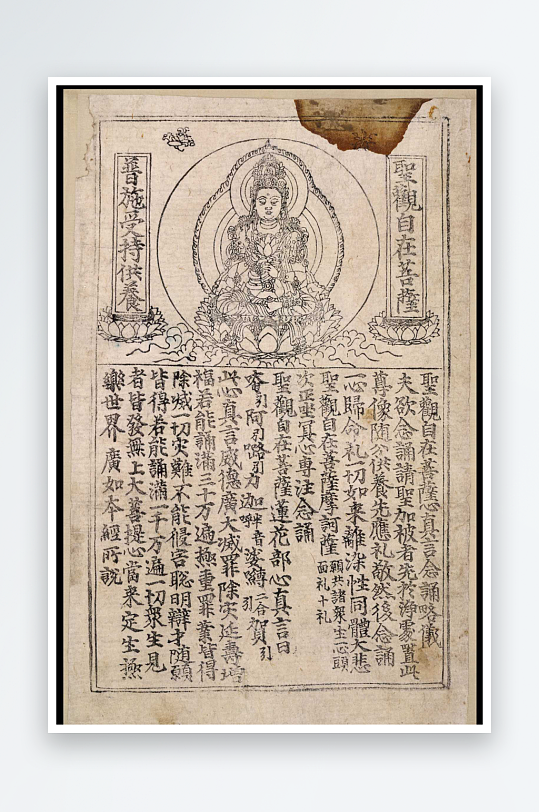 聖觀自在菩薩
普施受持供養
聖觀自在菩薩心真言念誦略儀
夫欲念誦請聖加被者先於淨處置此
尊像隨分供養先應礼敬然後念誦
一心歸命礼一切如來離染性同體大悲
聖觀自在菩薩摩訶薩願共諸衆生一心頭面礼十礼
次正坐冥心專注念誦
聖觀自在菩薩蓮花部心真言曰
唵引阿引嚕力引迦半音娑嚩二合引賀引
此心真言威德廣大滅罪除灾延壽增
福若能誦滿三十万遍極重罪業皆得
除滅一切灾難不能侵害聡明辯才隨願
皆得若能誦滿一千万遍一切衆生見
者皆發無上大菩提心當來定生極
樂世界廣如本經所說